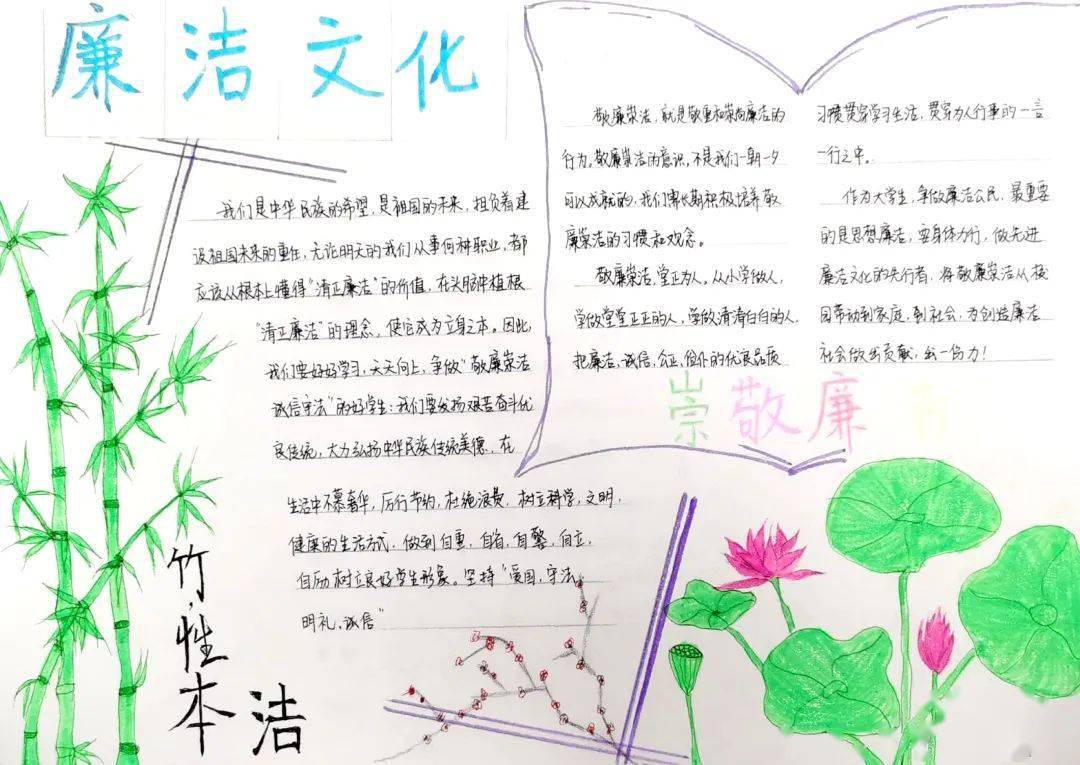 廉洁文化
我们是中华民族的希望,是祖国的未来,担负着建
设祖国未来的重任,无论明天的我们从事何种职业,都
应该从根本上懂得"清正廉洁"的价值,在头脑中植根
"清正廉洁"的理念,使它成为立身之本。因此,
我们要好好学习,天天向上,争做"敬廉崇洁
诚信守法"的好学生;我们要发扬艰苦奋斗优
良传统,大力弘扬中华民族传统美德,在
生活中不慕奢华,厉行节约,杜绝浪费,树立科学,文明,
健康的生活方式,做到自重,自省,自警,自立,
自励树立良好学生形象。坚持"爱国,守法,
明礼,诚信"
竹,性本洁
敬廉崇洁,就是敬重和崇尚廉洁的
行为。敬廉崇洁的意识,不是我们一朝一夕
可以成就的,我们需长期积极培养敬
廉崇洁的习惯和观念。
敬廉崇洁,堂正为人。从小学做人,
学做堂堂正正的人,学做清清白白的人.
把廉洁,诚信,公正,俭朴的优良品质
习惯贯穿学习生活,贯穿为人行事的一言
一行之中。
作为大学生,争做廉洁公民,最重要
的是思想廉洁,要身体力行,做先进
廉洁文化的先行者,将敬廉崇洁从校
园带动到家庭,到社会,为创造廉洁
社会做出贡献,出一份力!
崇敬廉